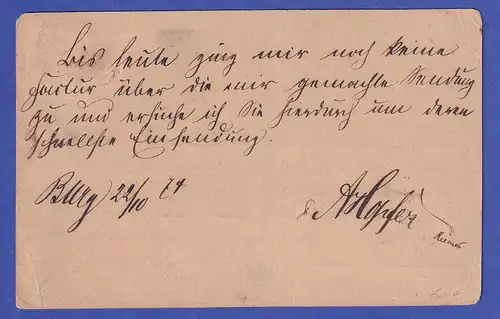 Bis heute ging mir noch keine
Factur über die mir gemachte Sendung
zu und ersuche ich Sie hierdurch um deren
schnellste Einsendung.
Burg 22/10 74